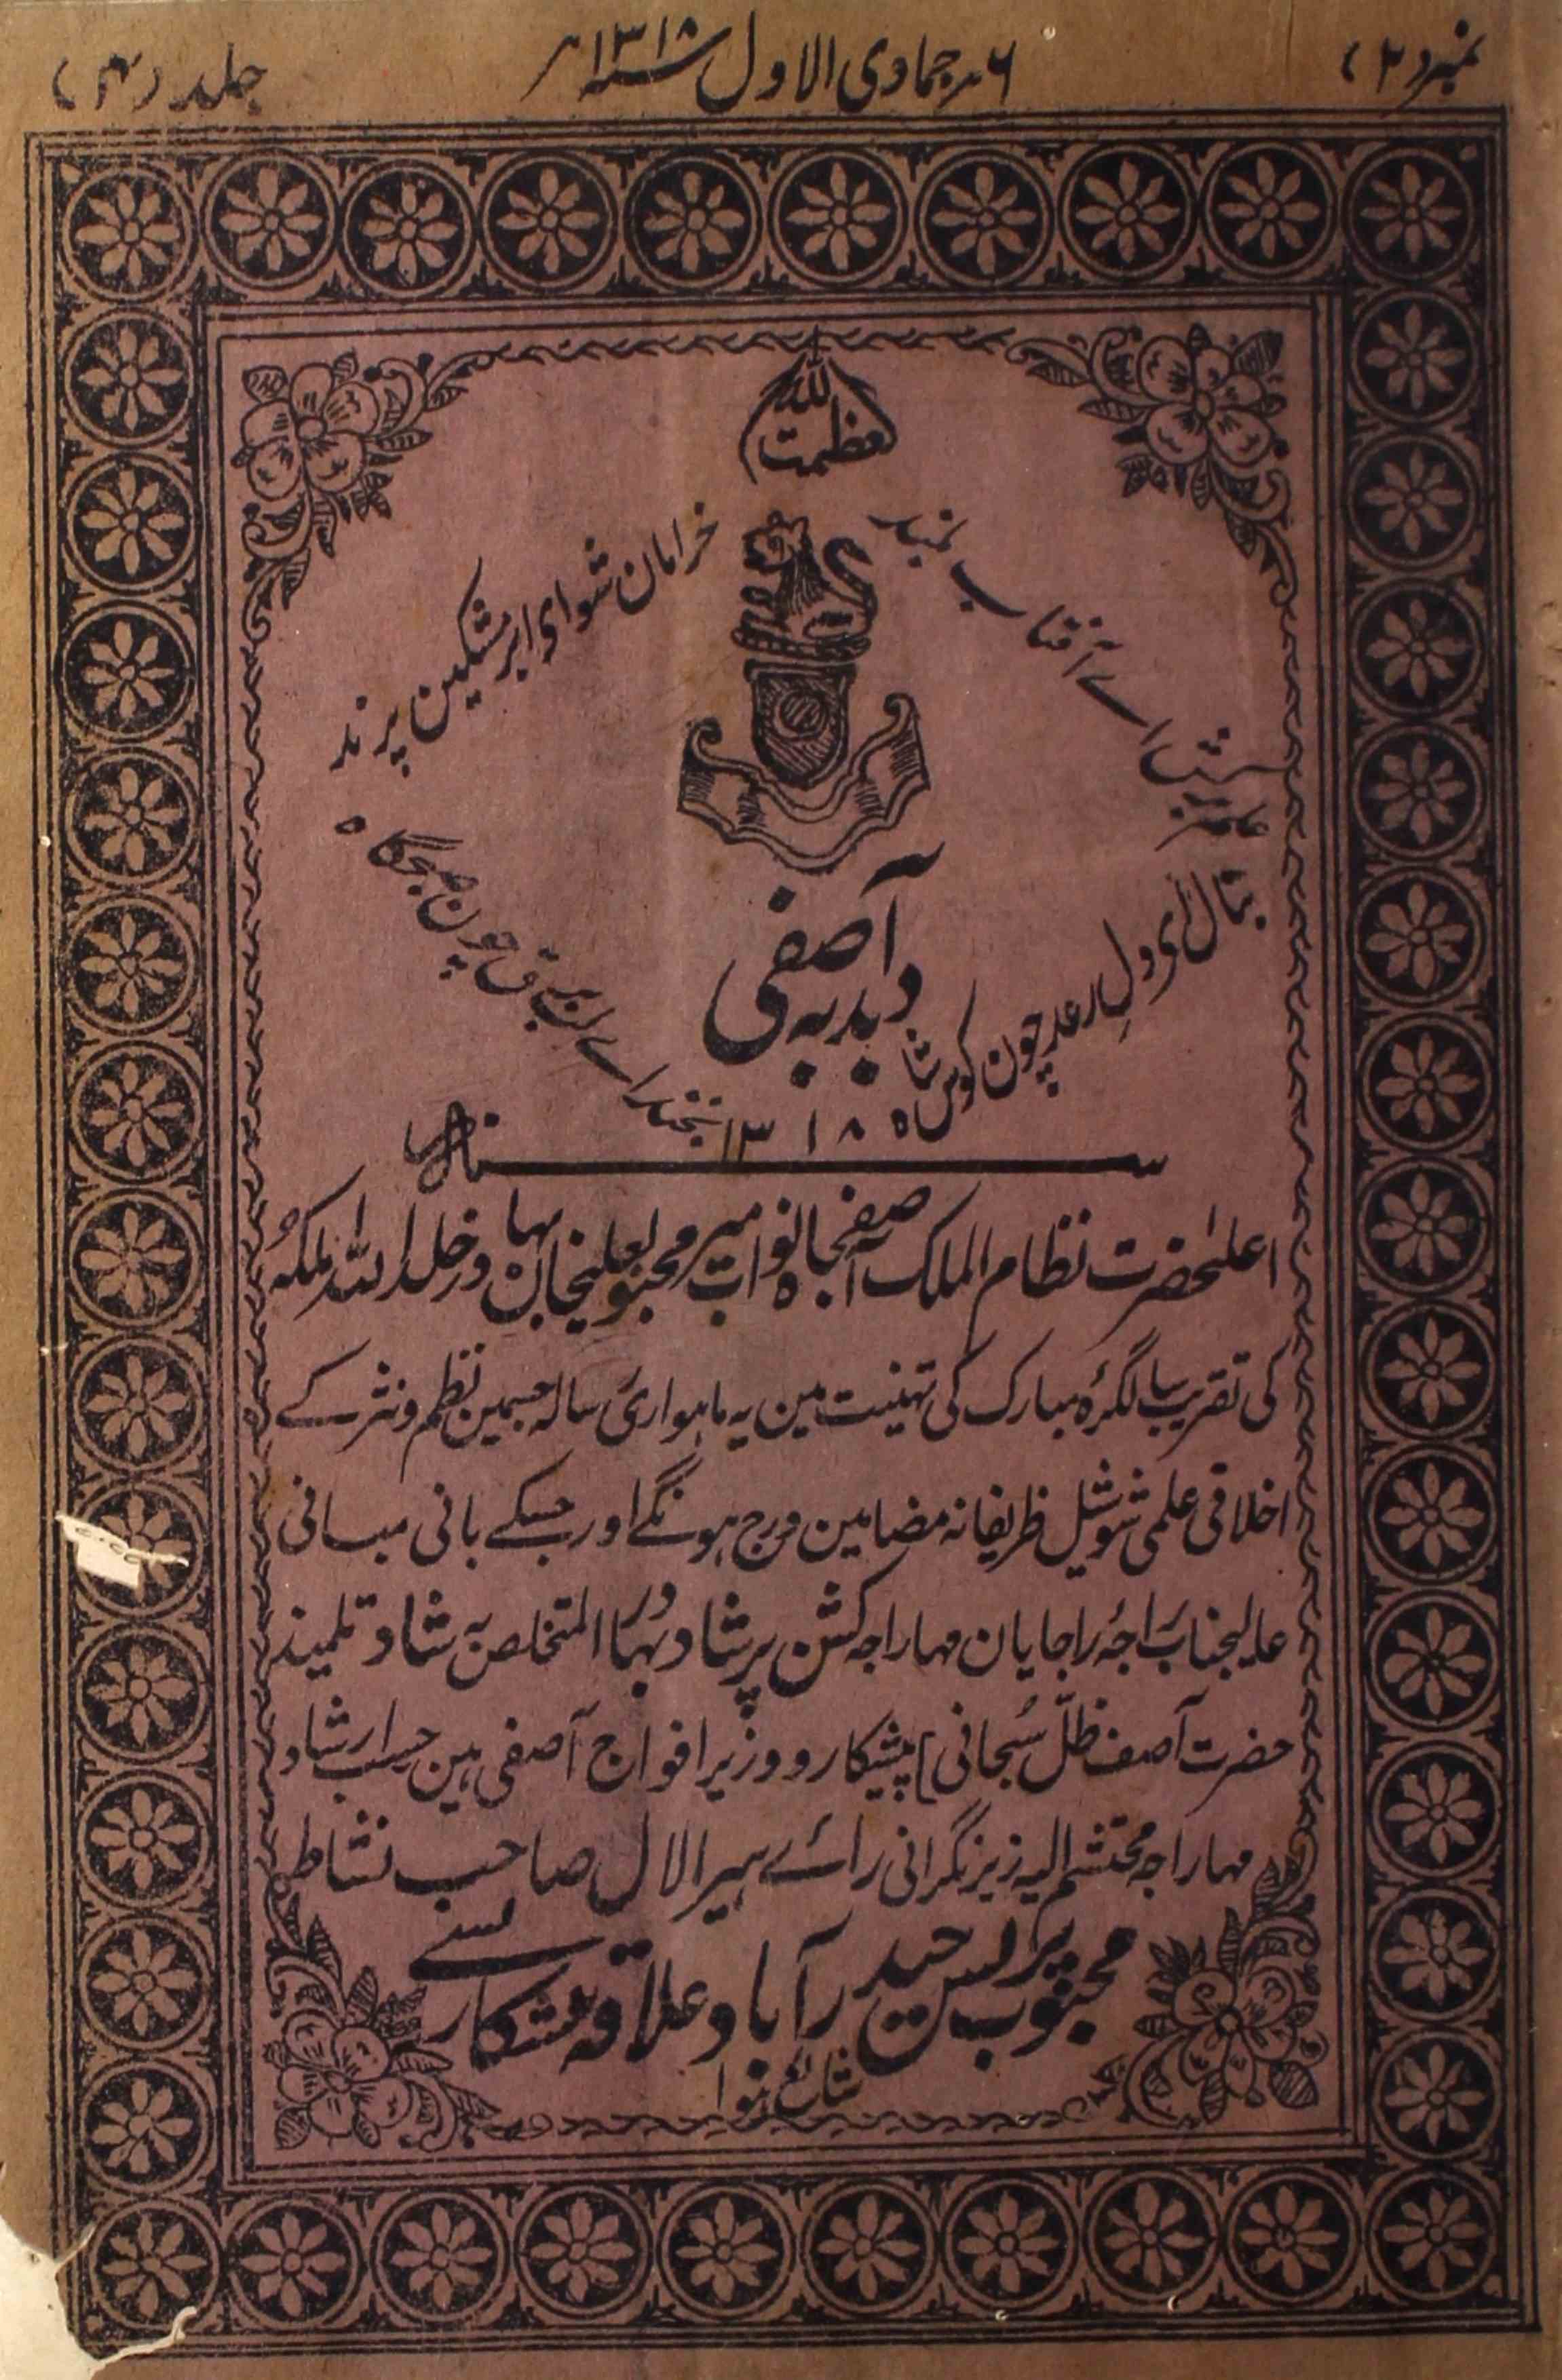 نمبر (۲)
۶ جمادی الاول ۱۳۱۸؁ھ
جلد (۴)
العظمت للہ
خرامان شو ای ابر مشکین پرند
بخند اے لب برق چون صبحگاہ
بنال ای دل رعد چون کوس شاہ
دبدبہ آصفی
۱۳۱۸
اعلیٰحضرت نظام الملک آصفجاہ نواب میر محبوبعلیخان بہادر خلد اللہ ملکہٗ
کی تقریب سالگرۂ مبارک کی تہنیت مین یہ ماہواری رسالہ جسمین نظم و نثر کے
اخلاقی علمی شوشیل ظریفانہ مضامین درج ہونگے اور جسکے بانی مبانی
عالیجناب راجۂ راجایان مہاراجہ کشن پرشاد بہادر المتخلص بہ شاد تلمیذ
حضرت آصف ظلّ سُبحانی] پیشکار و وزیر افواج آصفی ہین حسب ارشاد
مہاراجہ محتشم الیہ زیر نگرانی رائے ہیرا لال صاحب نشاط
محبوب پریس حیدرآباد علاقہ پیشکاری سے
شائع ہوا